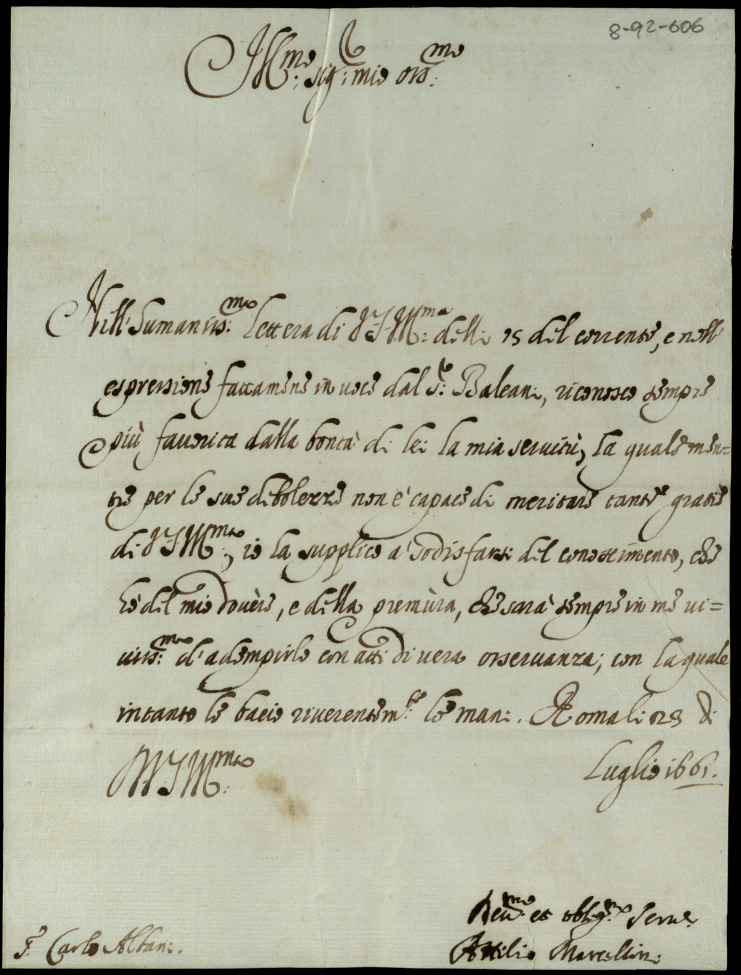 8-92-606
Ill.mo sig.r mio oss.mo
Nell'humaniss.ma lettera di V S Ill.ma delli 15 del corrente, e nell'
espressione fattamene in voce dal S.r Baleani, riconosco sempre
più favorita dalla bontà di lei la mia servitù, la quale men=
tre per le sue debolezze non è capace di meritare tante gratie
di V S Ill.ma, io la supplico a' sodisfarsi del conoscimento, che
hò del mio dovère, e della premùra, che sarà sempre in me vi=
viss.ma d'adempirlo con atti di vera osservanza; con la quale
intanto le bacio riverentem.te le mani. Roma li 23 di
Luglio 1661.
Di V S Ill.ma
Dev.mo et oblig.mo Serv.e
S.r Carlo Altani.
Attilio Marcellini